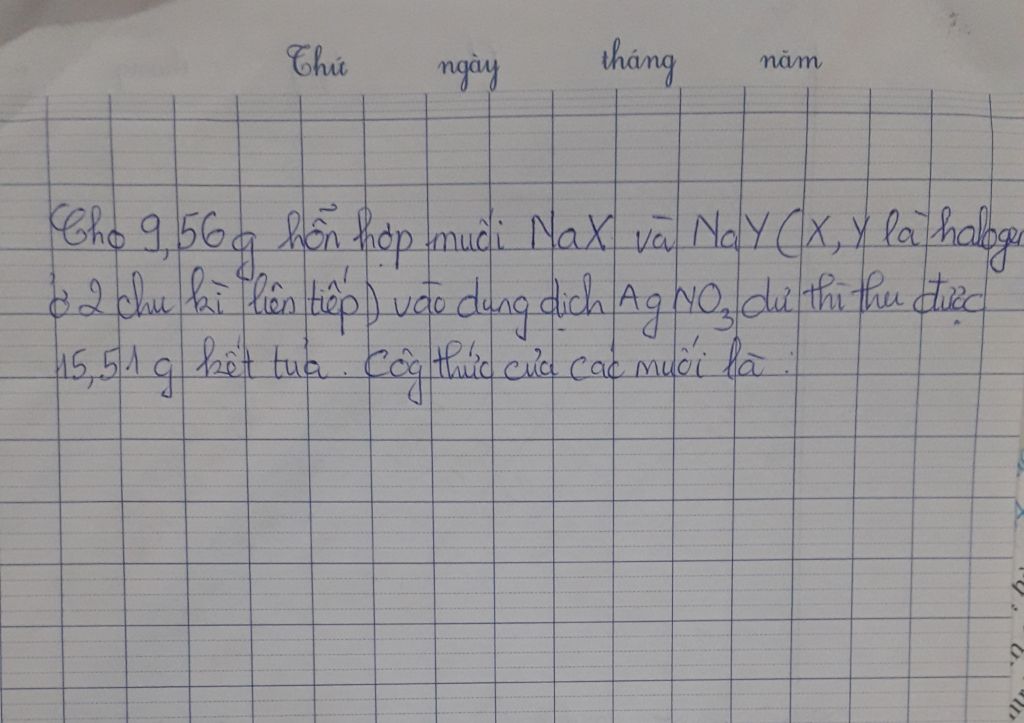 Thứ ngày tháng năm
Cho 9,56 g hỗn hợp muối NaX và NaY (X, Y là halogen
ở 2 chu kì liên tiếp) vào dung dịch AgNO₃ dư thì thu được
15,51 g kết tủa. Côg thức của các muối là :